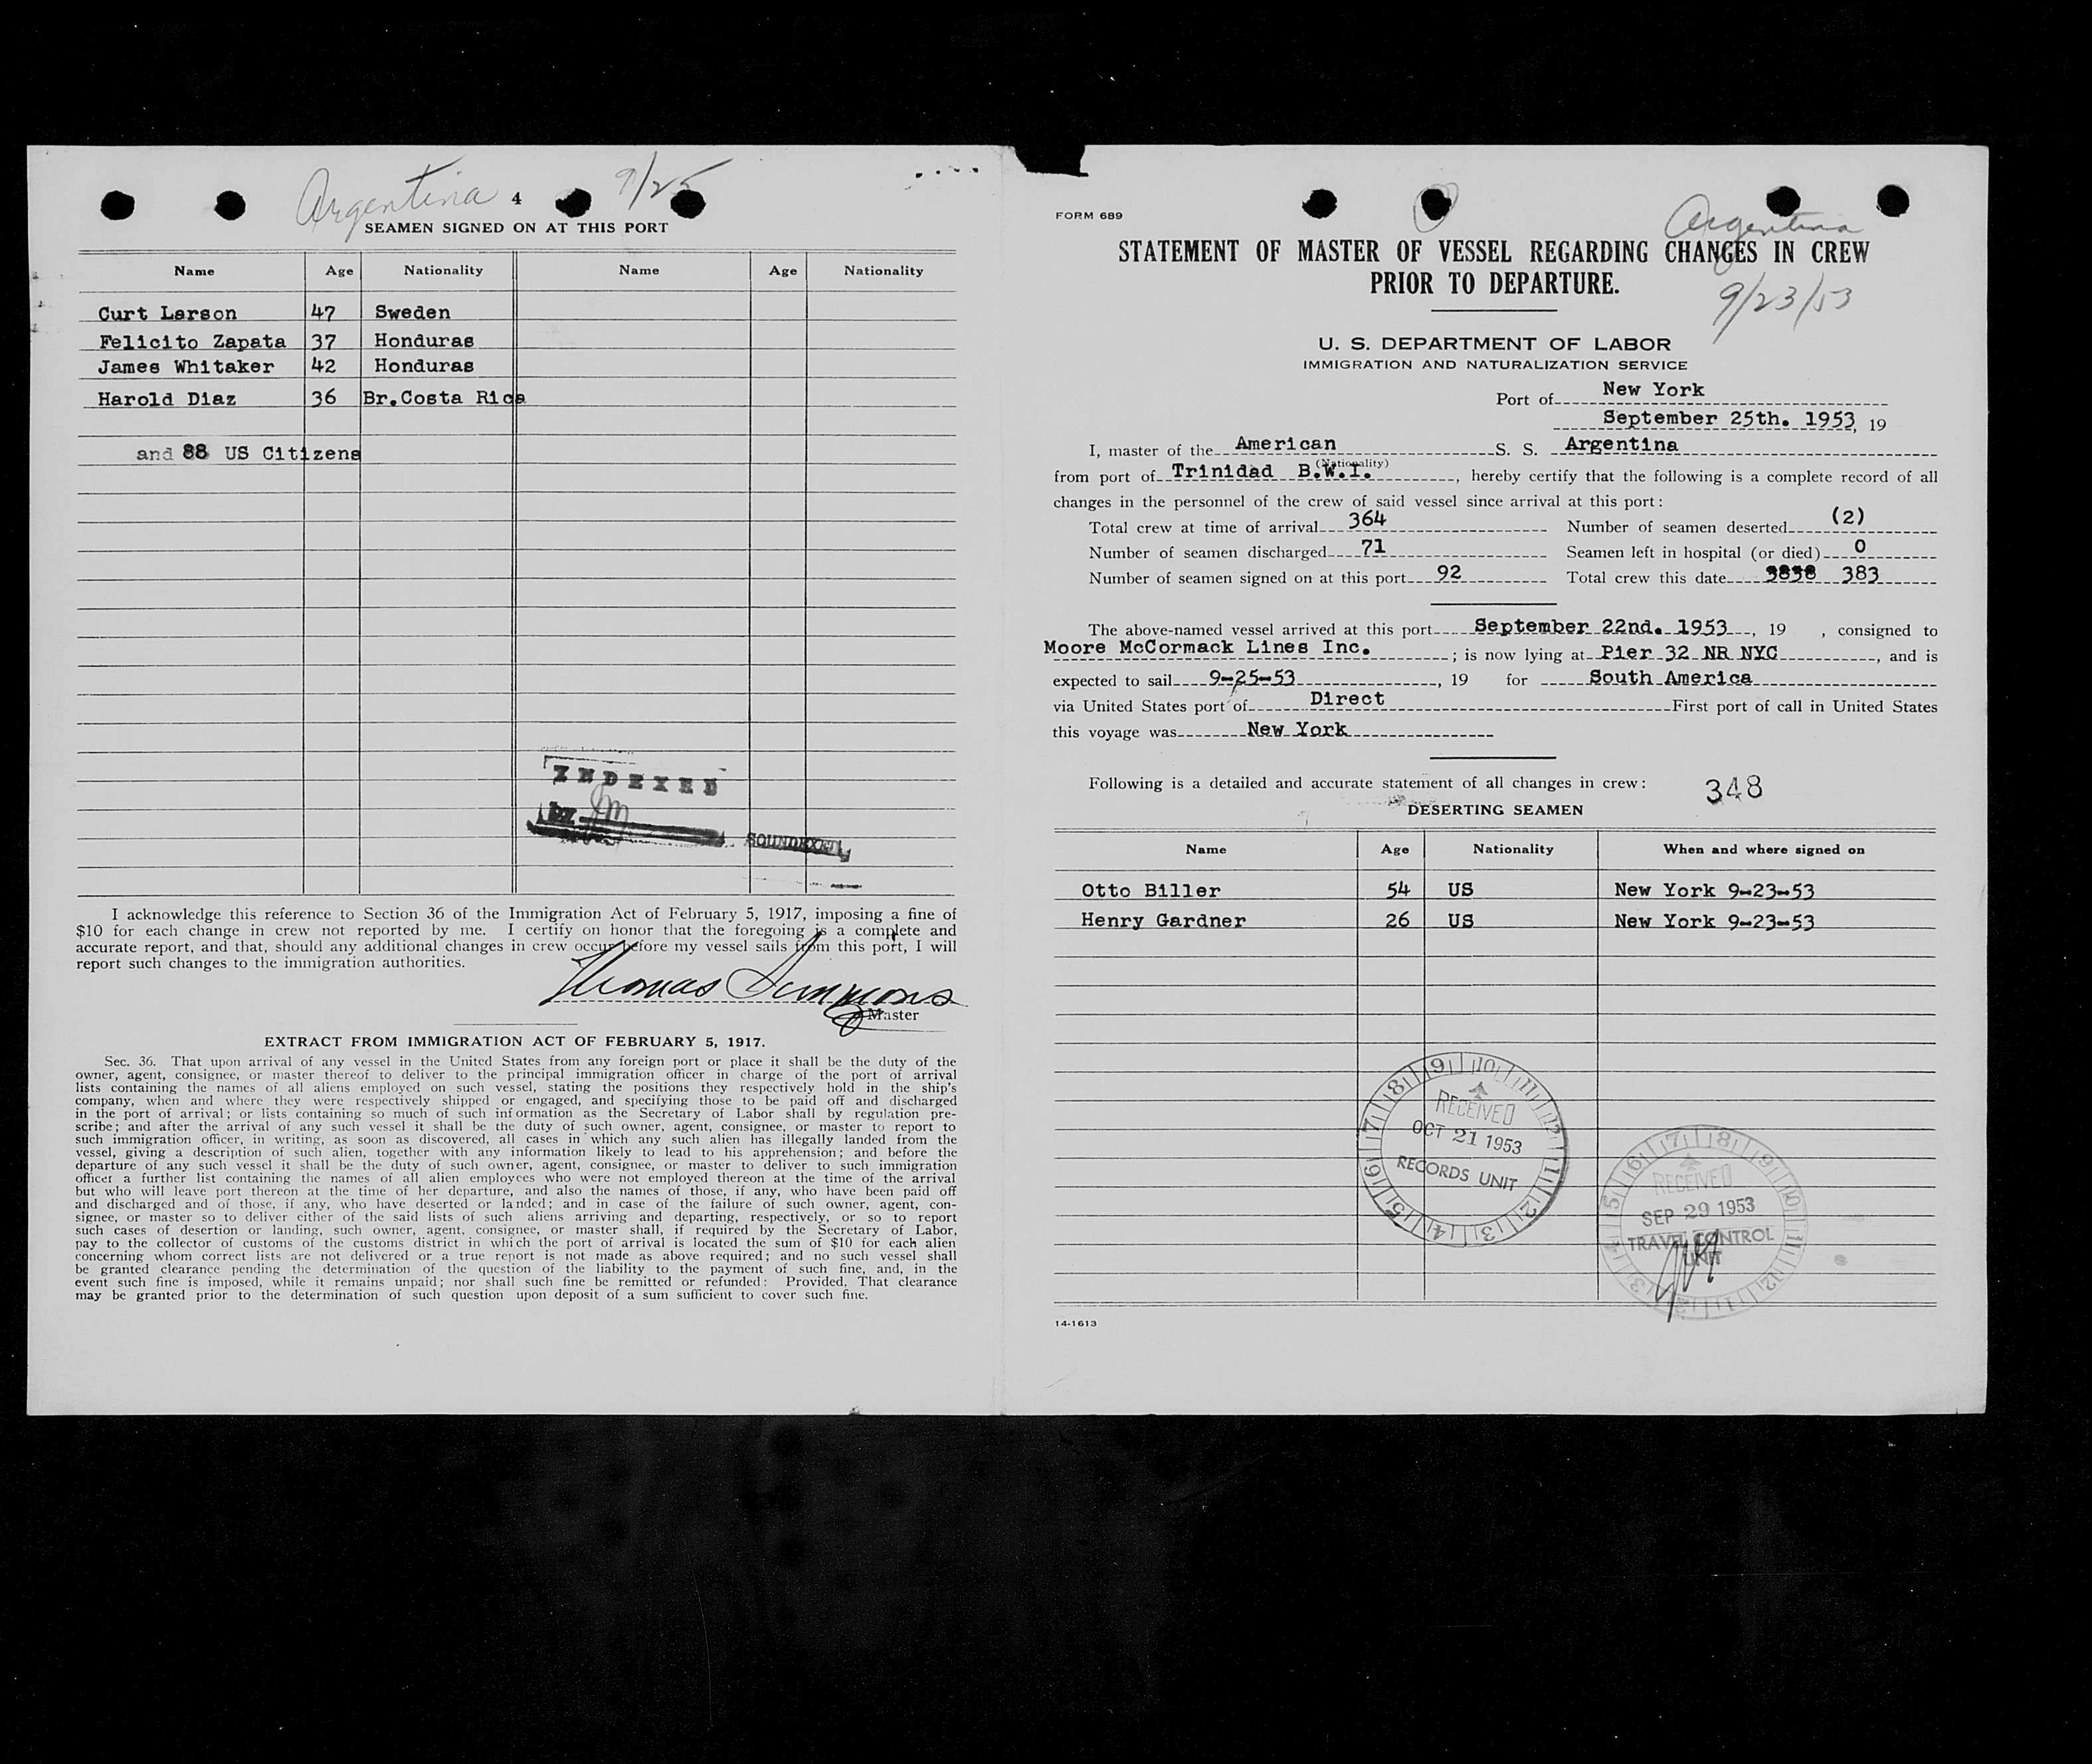 Argentina 4 9/25
SEAMEN SIGNED ON AT THIS PORT
Name Age Nationality Name Age Nationality
Curt Larson 47 Sweden
Felicito Zapata 37 Honduras
James Whitaker 42 Honduras
Harold Diaz 36 Br.Costa Rica
and 88 US Citizens
INDEXED
by
SOUNDEXED
I acknowledge this reference to Section 36 of the Immigration Act of February 5, 1917, imposing a fine of
$10 for each change in crew not reported by me. I certify on honor that the foregoing is a complete and
accurate report, and that, should any additional changes in crew occur before my vessel sails from this port, I will
report such changes to the immigration authorities.
Thomas Simmons
Master
EXTRACT FROM IMMIGRATION ACT OF FEBRUARY 5, 1917.
Sec. 36. That upon arrival of any vessel in the United States from any foreign port or place it shall be the duty of the
owner, agent, consignee, or master thereof to deliver to the principal immigration officer in charge of the port of arrival
lists containing the names of all aliens employed on such vessel, stating the positions they respectively hold in the ship's
company, when and where they were respectively shipped or engaged, and specifying those to be paid off and discharged
in the port of arrival; or lists containing so much of such information as the Secretary of Labor shall by regulation pre-
scribe; and after the arrival of any such vessel it shall be the duty of such owner, agent, consignee, or master to report to
such immigration officer, in writing, as soon as discovered, all cases in which any such alien has illegally landed from the
vessel, giving a description of such alien, together with any information likely to lead to his apprehension; and before the
departure of any such vessel it shall be the duty of such owner, agent, consignee, or master to deliver to such immigration
officer a further list containing the names of all alien employees who were not employed thereon at the time of the arrival
but who will leave port thereon at the time of her departure, and also the names of those, if any, who have been paid off
and discharged and of those, if any, who have deserted or landed; and in case of the failure of such owner, agent, con-
signee, or master so to deliver either of the said lists of such aliens arriving and departing, respectively, or so to report
such cases of desertion or landing, such owner, agent, consignee, or master shall, if required by the Secretary of Labor,
pay to the collector of customs of the customs district in which the port of arrival is located the sum of $10 for each alien
concerning whom correct lists are not delivered or a true report is not made as above required; and no such vessel shall
be granted clearance pending the determination of the question of the liability to the payment of such fine, and, in the
event such fine is imposed, while it remains unpaid; nor shall such fine be remitted or refunded: Provided, That clearance
may be granted prior to the determination of such question upon deposit of a sum sufficient to cover such fine.
FORM 689
Argentina
STATEMENT OF MASTER OF VESSEL REGARDING CHANGES IN CREW
PRIOR TO DEPARTURE.
9/23/53
U. S. DEPARTMENT OF LABOR
IMMIGRATION AND NATURALIZATION SERVICE
Port of New York
September 25th. 1953, 19
I, master of the American S. S. Argentina
(Nationality)
from port of Trinidad B.W.I. , hereby certify that the following is a complete record of all
changes in the personnel of the crew of said vessel since arrival at this port:
Total crew at time of arrival 364 Number of seamen deserted (2)
Number of seamen discharged 71 Seamen left in hospital (or died) 0
Number of seamen signed on at this port 92 Total crew this date 383
The above-named vessel arrived at this port September 22nd. 1953, 19 , consigned to
Moore McCormack Lines Inc. ; is now lying at Pier 32 NR NYC , and is
expected to sail 9-25-53 , 19 for South America
via United States port of Direct First port of call in United States
this voyage was New York
Following is a detailed and accurate statement of all changes in crew: 348
DESERTING SEAMEN
Name Age Nationality When and where signed on
Otto Biller 54 US New York 9-23-53
Henry Gardner 26 US New York 9-23-53
RECEIVED
OCT 21 1953
RECORDS UNIT
RECEIVED
SEP 29 1953
TRAVEL CONTROL
UNIT
14-1613